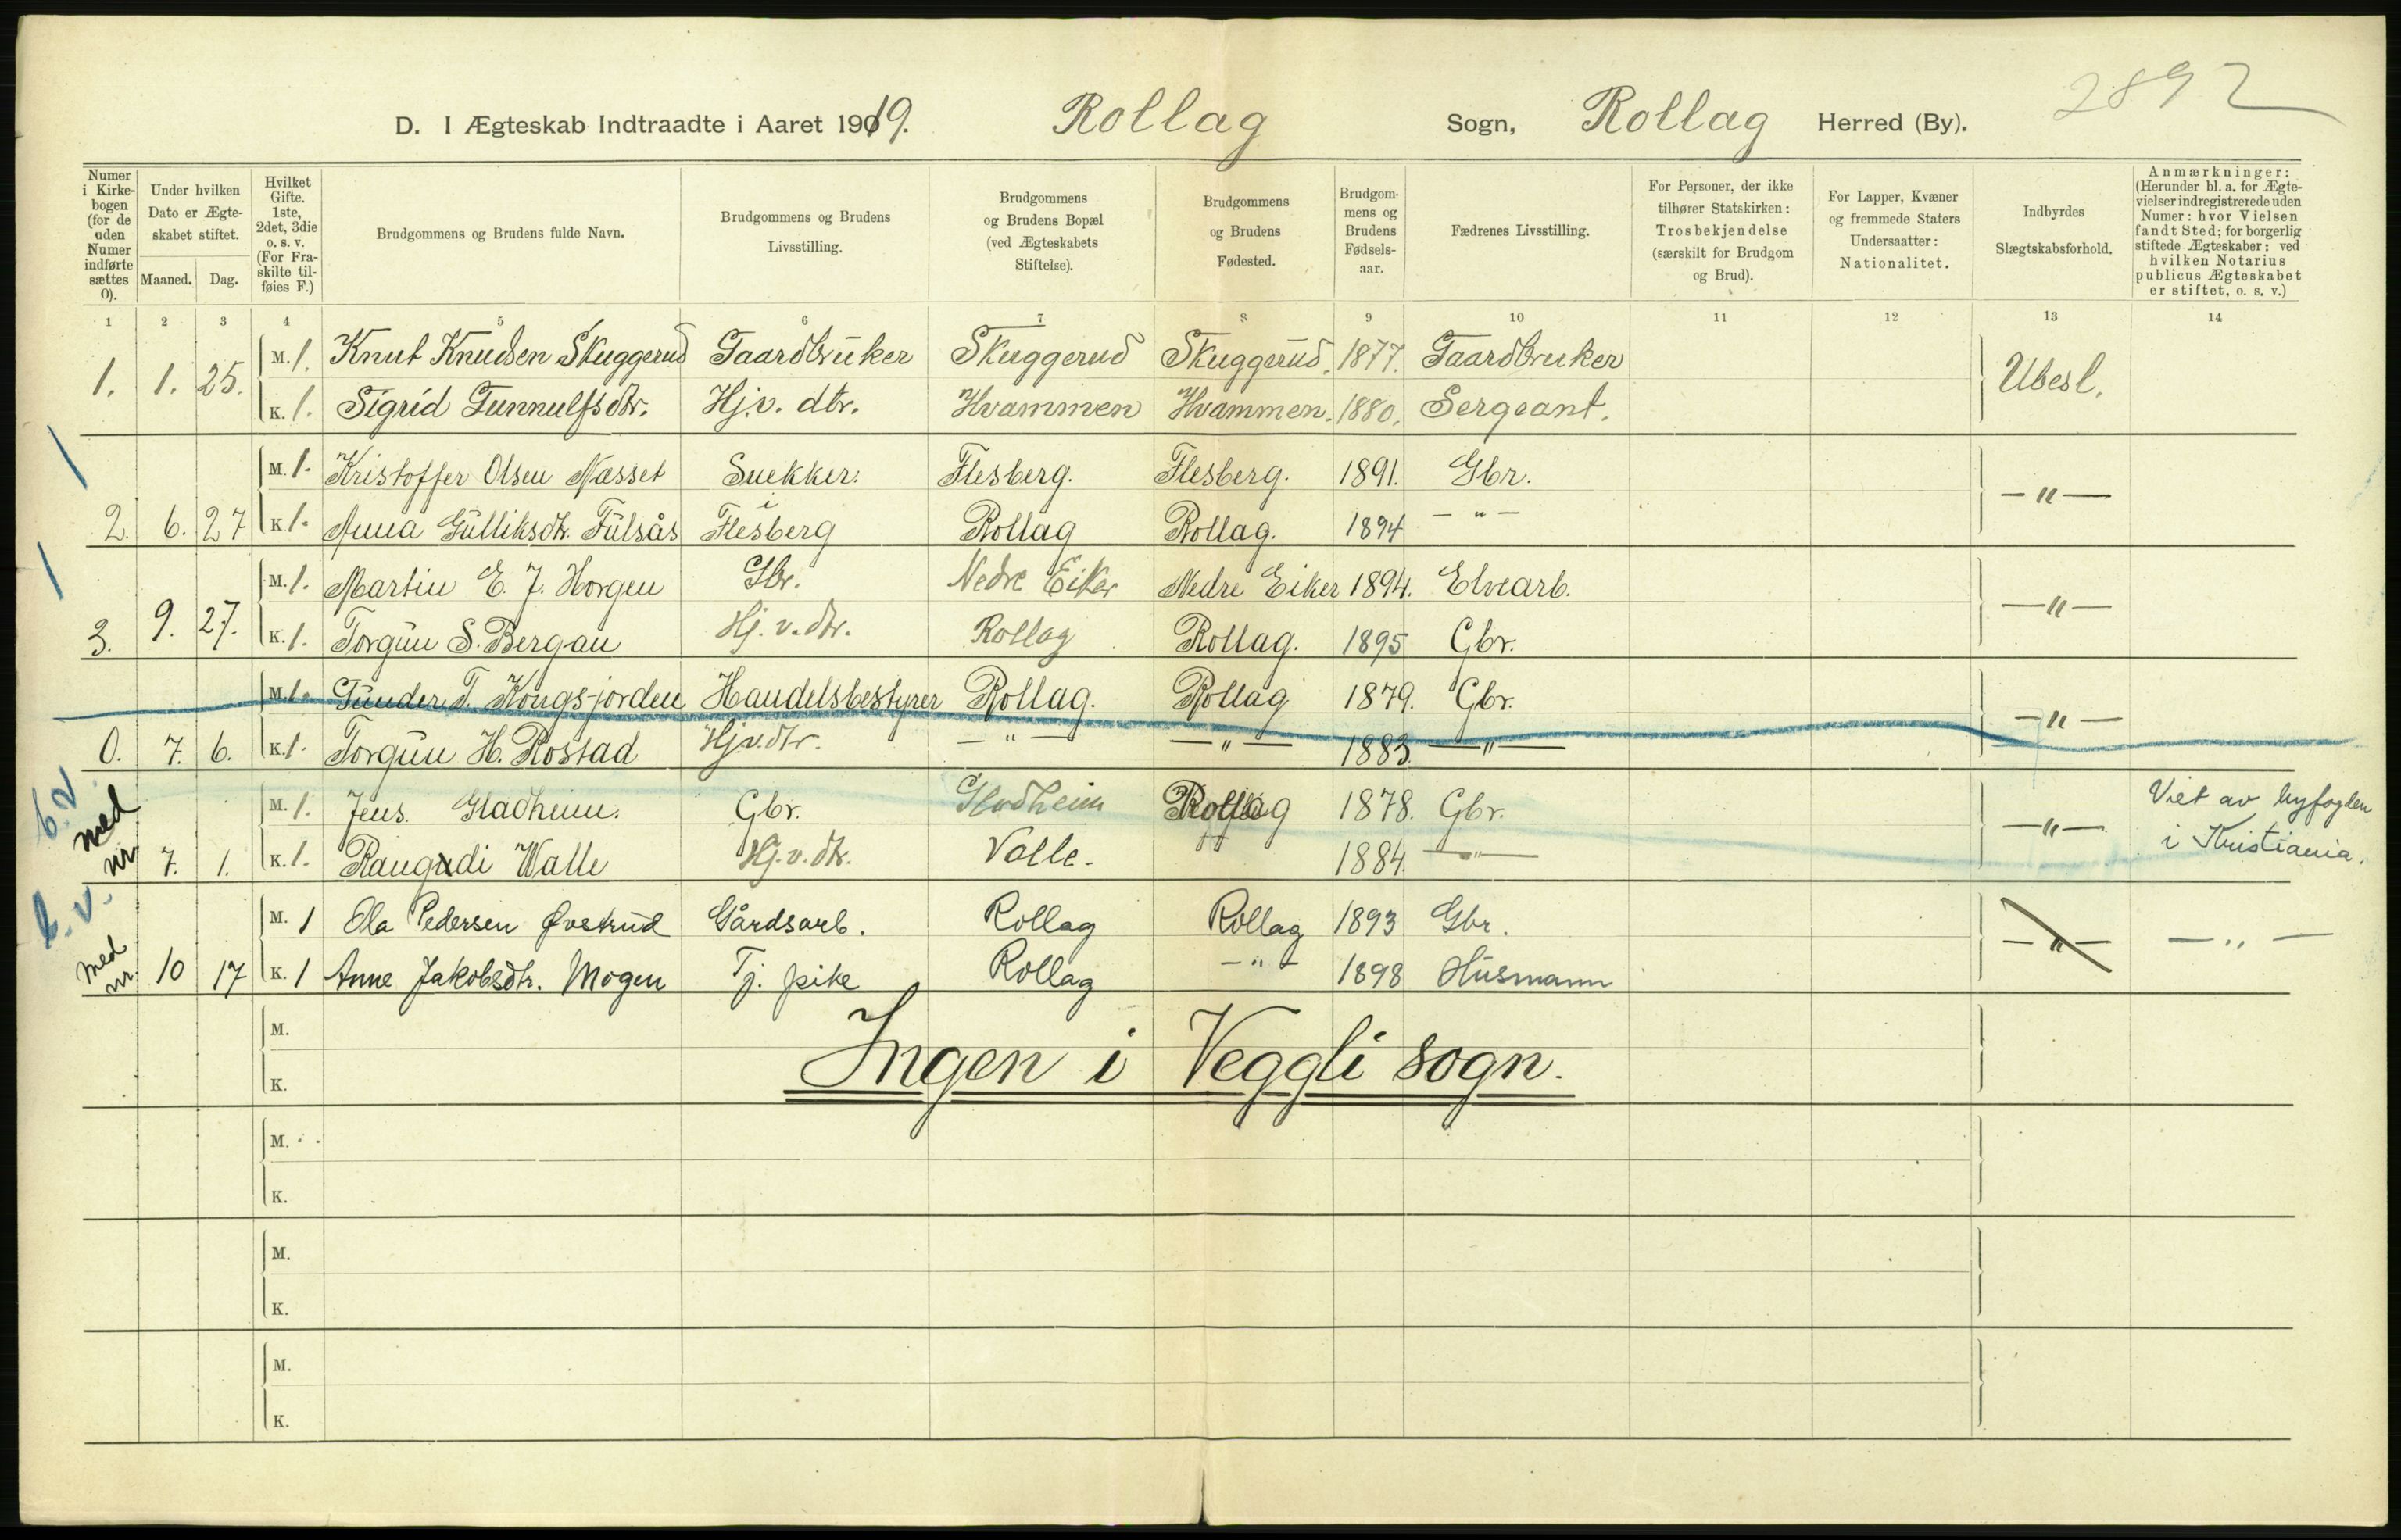 2892
D. I Ægteskab Indtraadte i Aaret 1919. Rollag Sogn, Rollag Herred (By).
Numer i Kirkebogen (for de uden Numer indførte sættes 0).
Under hvilken Dato er Ægteskabet stiftet.
Maaned. Dag.
Hvilket Gifte. 1ste, 2det, 3die o. s. v. (For Fraskilte tilføies F.)
Brudgommens og Brudens fulde Navn.
Brudgommens og Brudens Livsstilling.
Brudgommens og Brudens Bopæl (ved Ægteskabets Stiftelse).
Brudgommens og Brudens Fødested.
Brudgommens og Brudens Fødselsaar.
Fædrenes Livsstilling.
For Personer, der ikke tilhører Statskirken: Trosbekjendelse (særskilt for Brudgom og Brud).
For Lapper, Kvæner og fremmede Staters Undersaatter: Nationalitet.
Indbyrdes Slægtskabsforhold.
Anmærkninger: (Herunder bl. a. for Ægtevielser indregistrerede uden Numer: hvor Vielsen fandt Sted; for borgerlig stiftede Ægteskaber: ved hvilken Notarius publicus Ægteskabet er stiftet, o. s. v.)
1 2 3 4 5 6 7 8 9 10 11 12 13 14
M. 1. Knut Knudsen Skuggerud Gaardbruker Skuggerud Skuggerud. 1877. Gaardbruker
1. 1. 25. K. 1. Sigrid Gunnulfsdtr. Hj.v. dtr. Hvammen Hvammen. 1880. Sergeant. Ubesl.
1
M. 1. Kristoffer Olsen Næsset Snekker. Flesberg. Flesberg. 1891. Gbr. — " —
2. 6. 27 K. 1. Anna Gulliksdtr. Fulsås i Flesberg Rollag Rollag. 1894 — " —
1
M. 1. Martin E. J. Horgen Gbr. Nedre Eiker Nedre Eiker 1894. Elvearb. — " —
3. 9. 27. K. 1. Torgun S. Bergan Hj. v. dtr. Rollag Rollag. 1895 Gbr.
M. 1. Gunder T. Kongsjorden Handelsbestyrer Rollag. Rollag 1879. Gbr. — " —
0. 7. 6. K. 1. Torgun H. Rostad Hj.v.dtr. — " — — " — 1883. — " —
b.v. med nr.
M. 1. Jens. Gladheim. Gbr. Gladheim Rollag 1878. Gbr. — " — Viet av byfogden
7. 1. K. 1. Rangdi Walle Hj. v. dtr. Valle. 1884. — " — i Kristiania.
b.v. med nr.
M. 1 Ola Pedersen Øvstrud Gårdsarb. Rollag Rollag 1893 Gbr. — " — — " —
10 17 K. 1 Anne Jakobsdtr. Mogen Tj. pike Rollag — " — 1898 Husmann
M.
Ingen i Veggli sogn.
K.
M.
K.
M.
K.
M.
K.